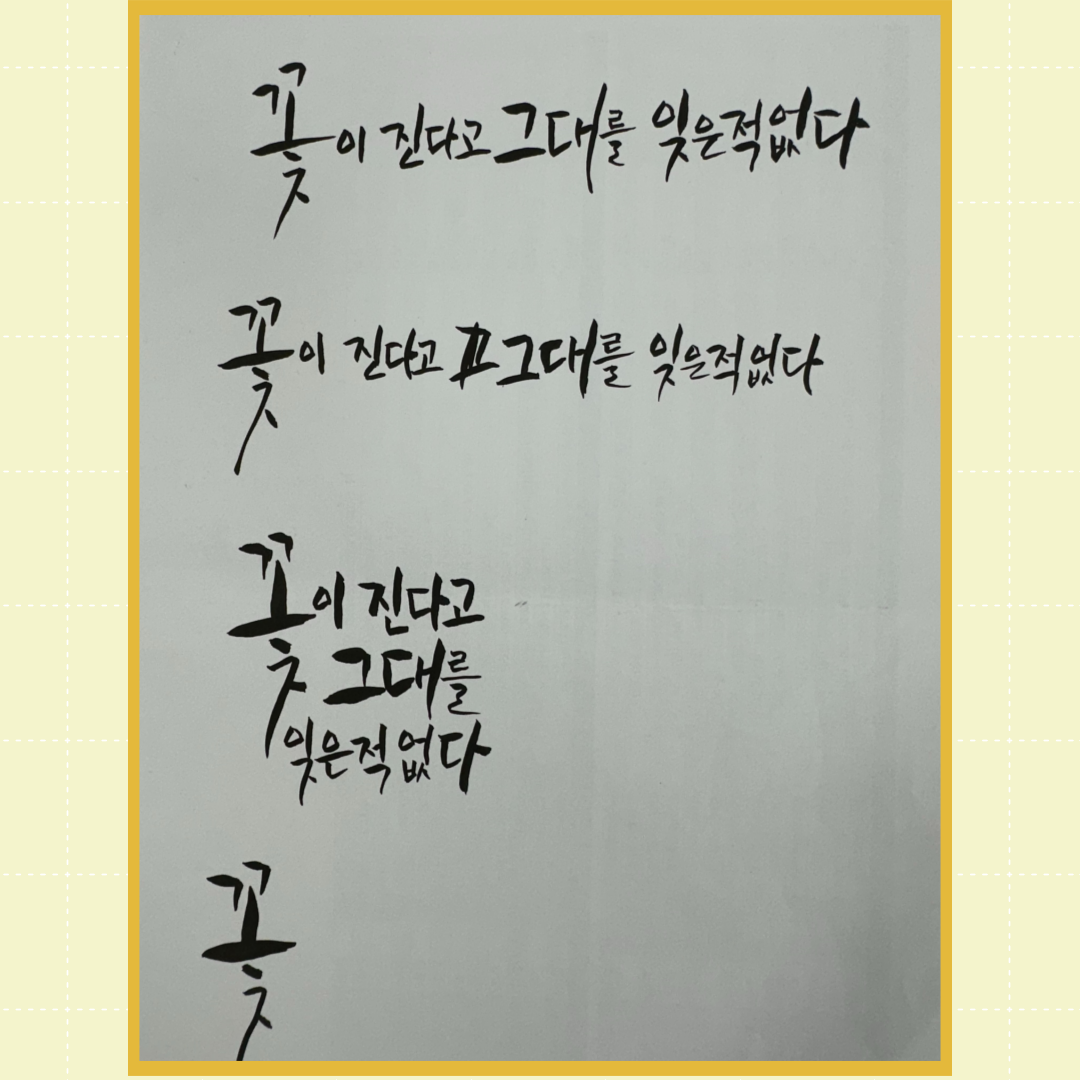 꽃이 진다고 그대를 잊은적없다
꽃이 진다고 그대를 잊은적없다
꽃이 진다고
그대를
잊은적없다
꽃